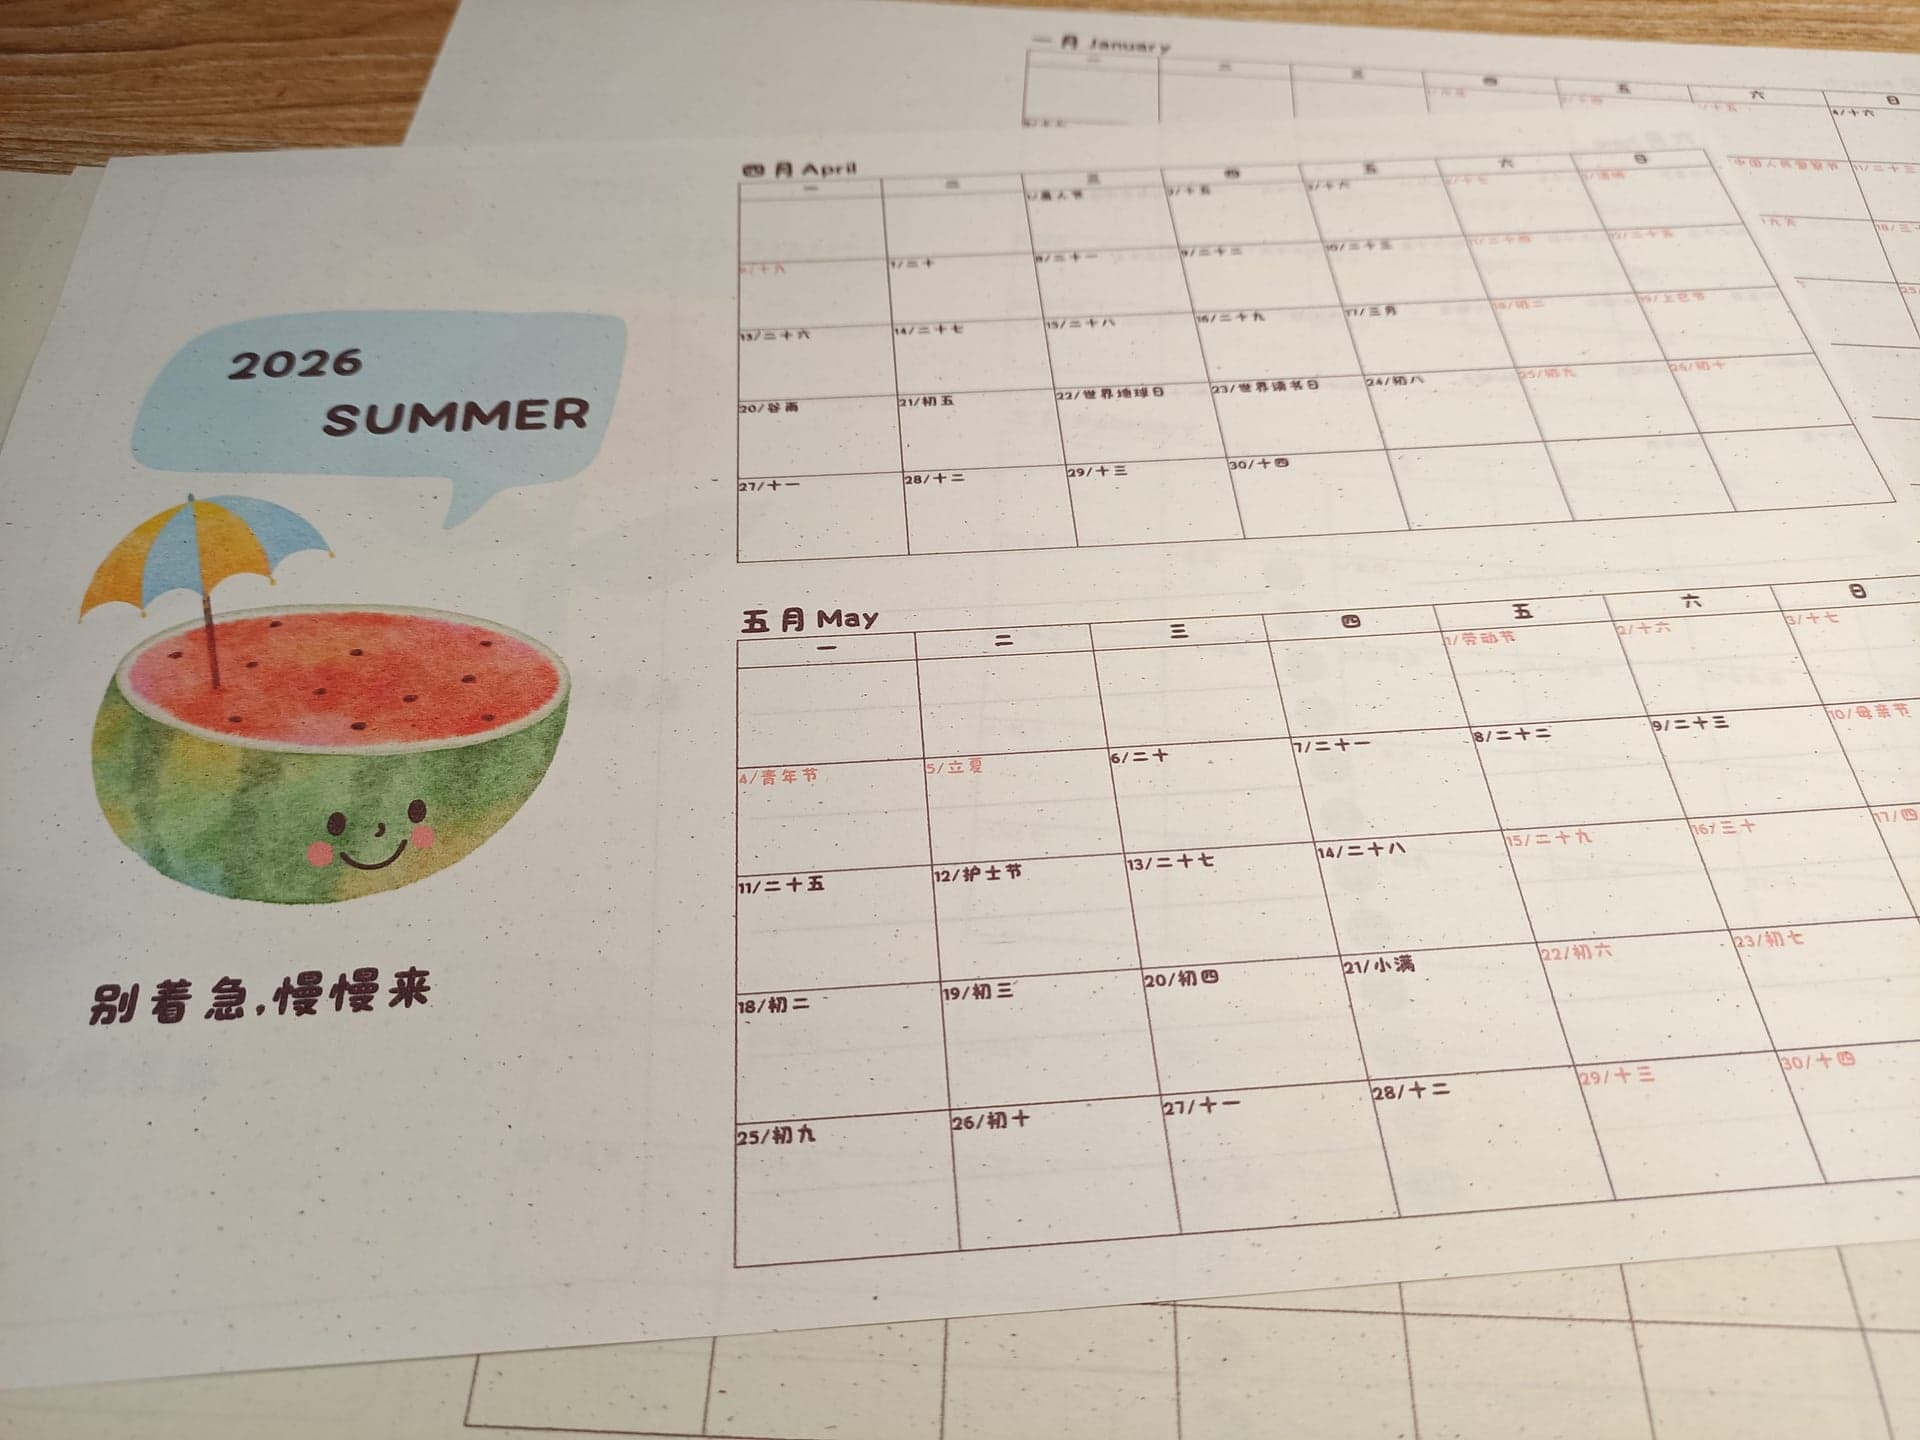 一月 January
一 二 三 四 五 六 日
4/十六
四月 April
一 二 三 四 五 六 日
1/愚人节 2/十五 3/十六 4/十七 5/清明
6/十九 7/二十 8/二十一 9/二十二 10/二十三 11/二十四 12/二十五
13/二十六 14/二十七 15/二十八 16/二十九 17/三月 18/初二 19/上巳节
20/谷雨 21/初五 22/世界地球日 23/世界读书日 24/初八 25/初九 26/初十
27/十一 28/十二 29/十三 30/十四
2026
SUMMER
别着急,慢慢来
五月 May
一 二 三 四 五 六 日
1/劳动节 2/十六 3/十七
4/青年节 5/立夏 6/二十 7/二十一 8/二十二 9/二十三 10/母亲节
11/二十五 12/护士节 13/二十七 14/二十八 15/二十九 16/三十 17/四
18/初二 19/初三 20/初四 21/小满 22/初六 23/初七
25/初九 26/初十 27/十一 28/十二 29/十三 30/十四